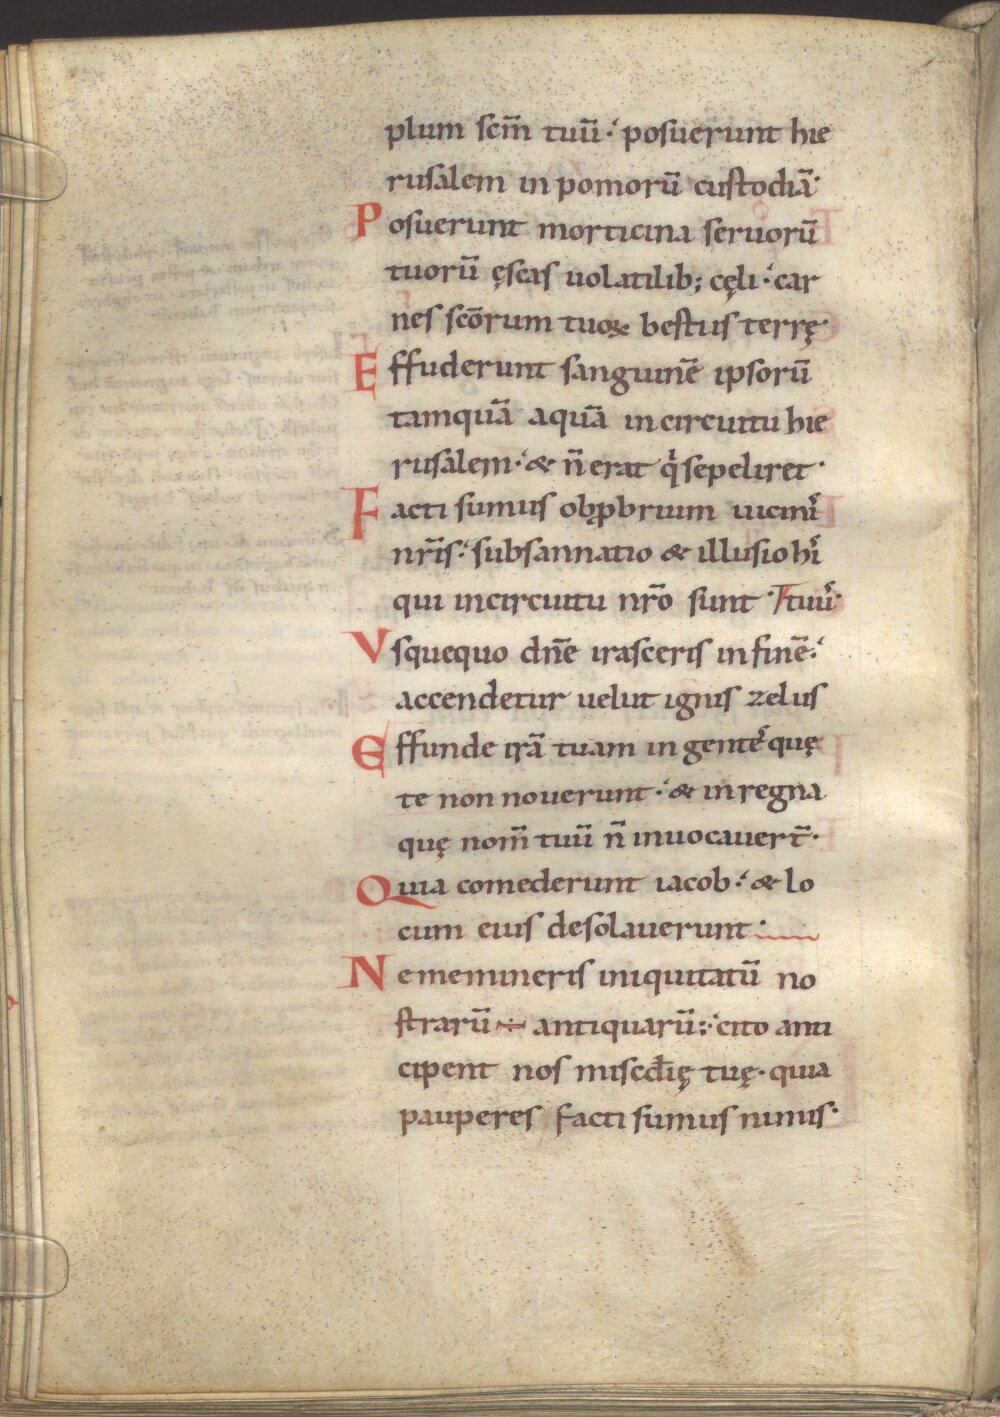 plum scm̄ tuū · posuerunt hie
rusalem in pomorū custodiā·
Posuerunt morticina seruorū
tuorū ęscas uolatilib; cęli · car
nes scōrum tuoꝝ bestiis terrę·
Effuderunt sanguinē ipsorū
tamquā aquā in circuitu hie
rusalem · & n̄ erat qͥ sepeliret ·
Facti sumus obꝓbrium uicini
nr̄is · subsannatio & illusio hi
qui in circuitu nr̄o sunt · tuuſ·
Vsquequo dn̄e irasceris in finē ·
accendetur uelut ignis zelus
Effunde irā tuam in gente quę
te non nouerunt · & in regna
quę nom̄ tuū n̄ inuocauert̄ ·
Quia comederunt iacob · & lo
cum eius desolauerunt ·
Ne memineris iniquitatū no
strarū ÷ antiquarū : · cito anti
cipent nos misc̄dię tuę · quia
pauperes facti sumus nimis·